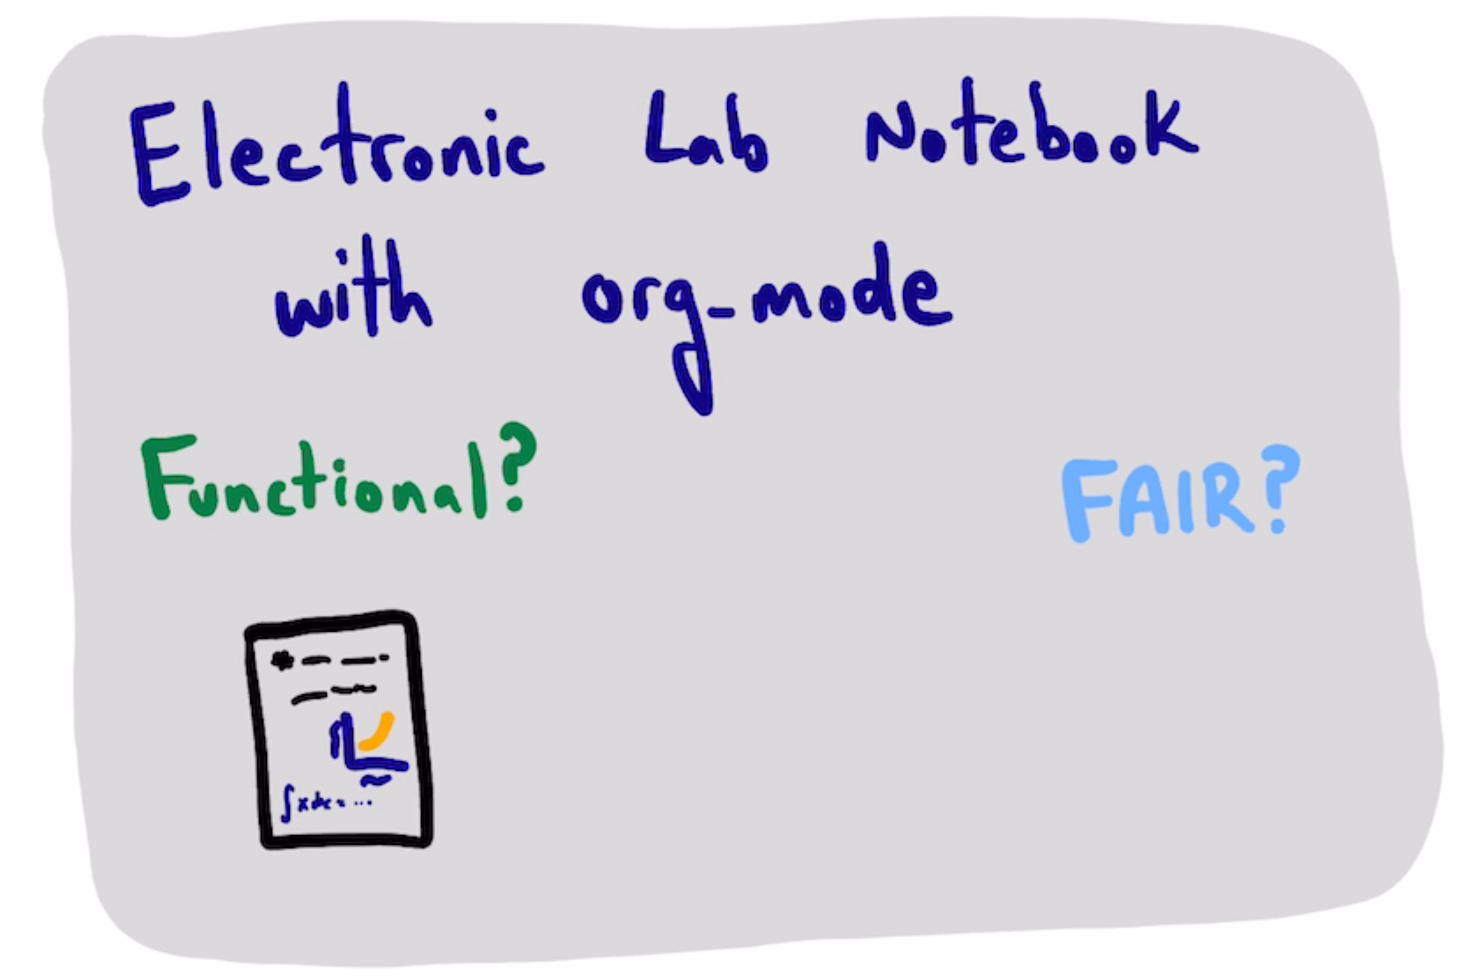 Electronic Lab Notebook
with org-mode
Functional? FAIR?